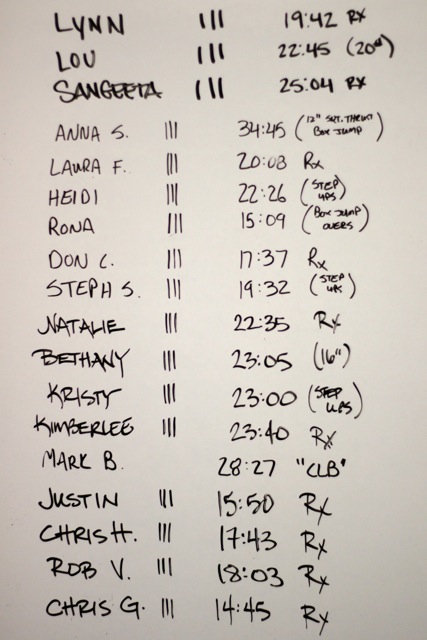 LYNN ||| 19:42 RX
LOU ||| 22:45 (20")
SANGEETA ||| 25:04 RX
ANNA S. ||| 34:45 (12" SQT. THRUST BOX JUMP)
LAURA F. ||| 20:08 Rx
HEIDI ||| 22:26 (STEP UPS)
RONA ||| 15:09 (BOX JUMP OVERS)
DON C. ||| 17:37 Rx
STEPH S. ||| 19:32 (STEP UPS)
NATALIE ||| 22:35 Rx
BETHANY ||| 23:05 (16")
KRISTY ||| 23:00 (STEP UPS)
KIMBERLEE ||| 23:40 Rx
MARK B. 28:27 "CLB"
JUSTIN ||| 15:50 Rx
CHRIS H. ||| 17:43 Rx
ROB V. ||| 18:03 Rx
CHRIS G. ||| 14:45 Rx